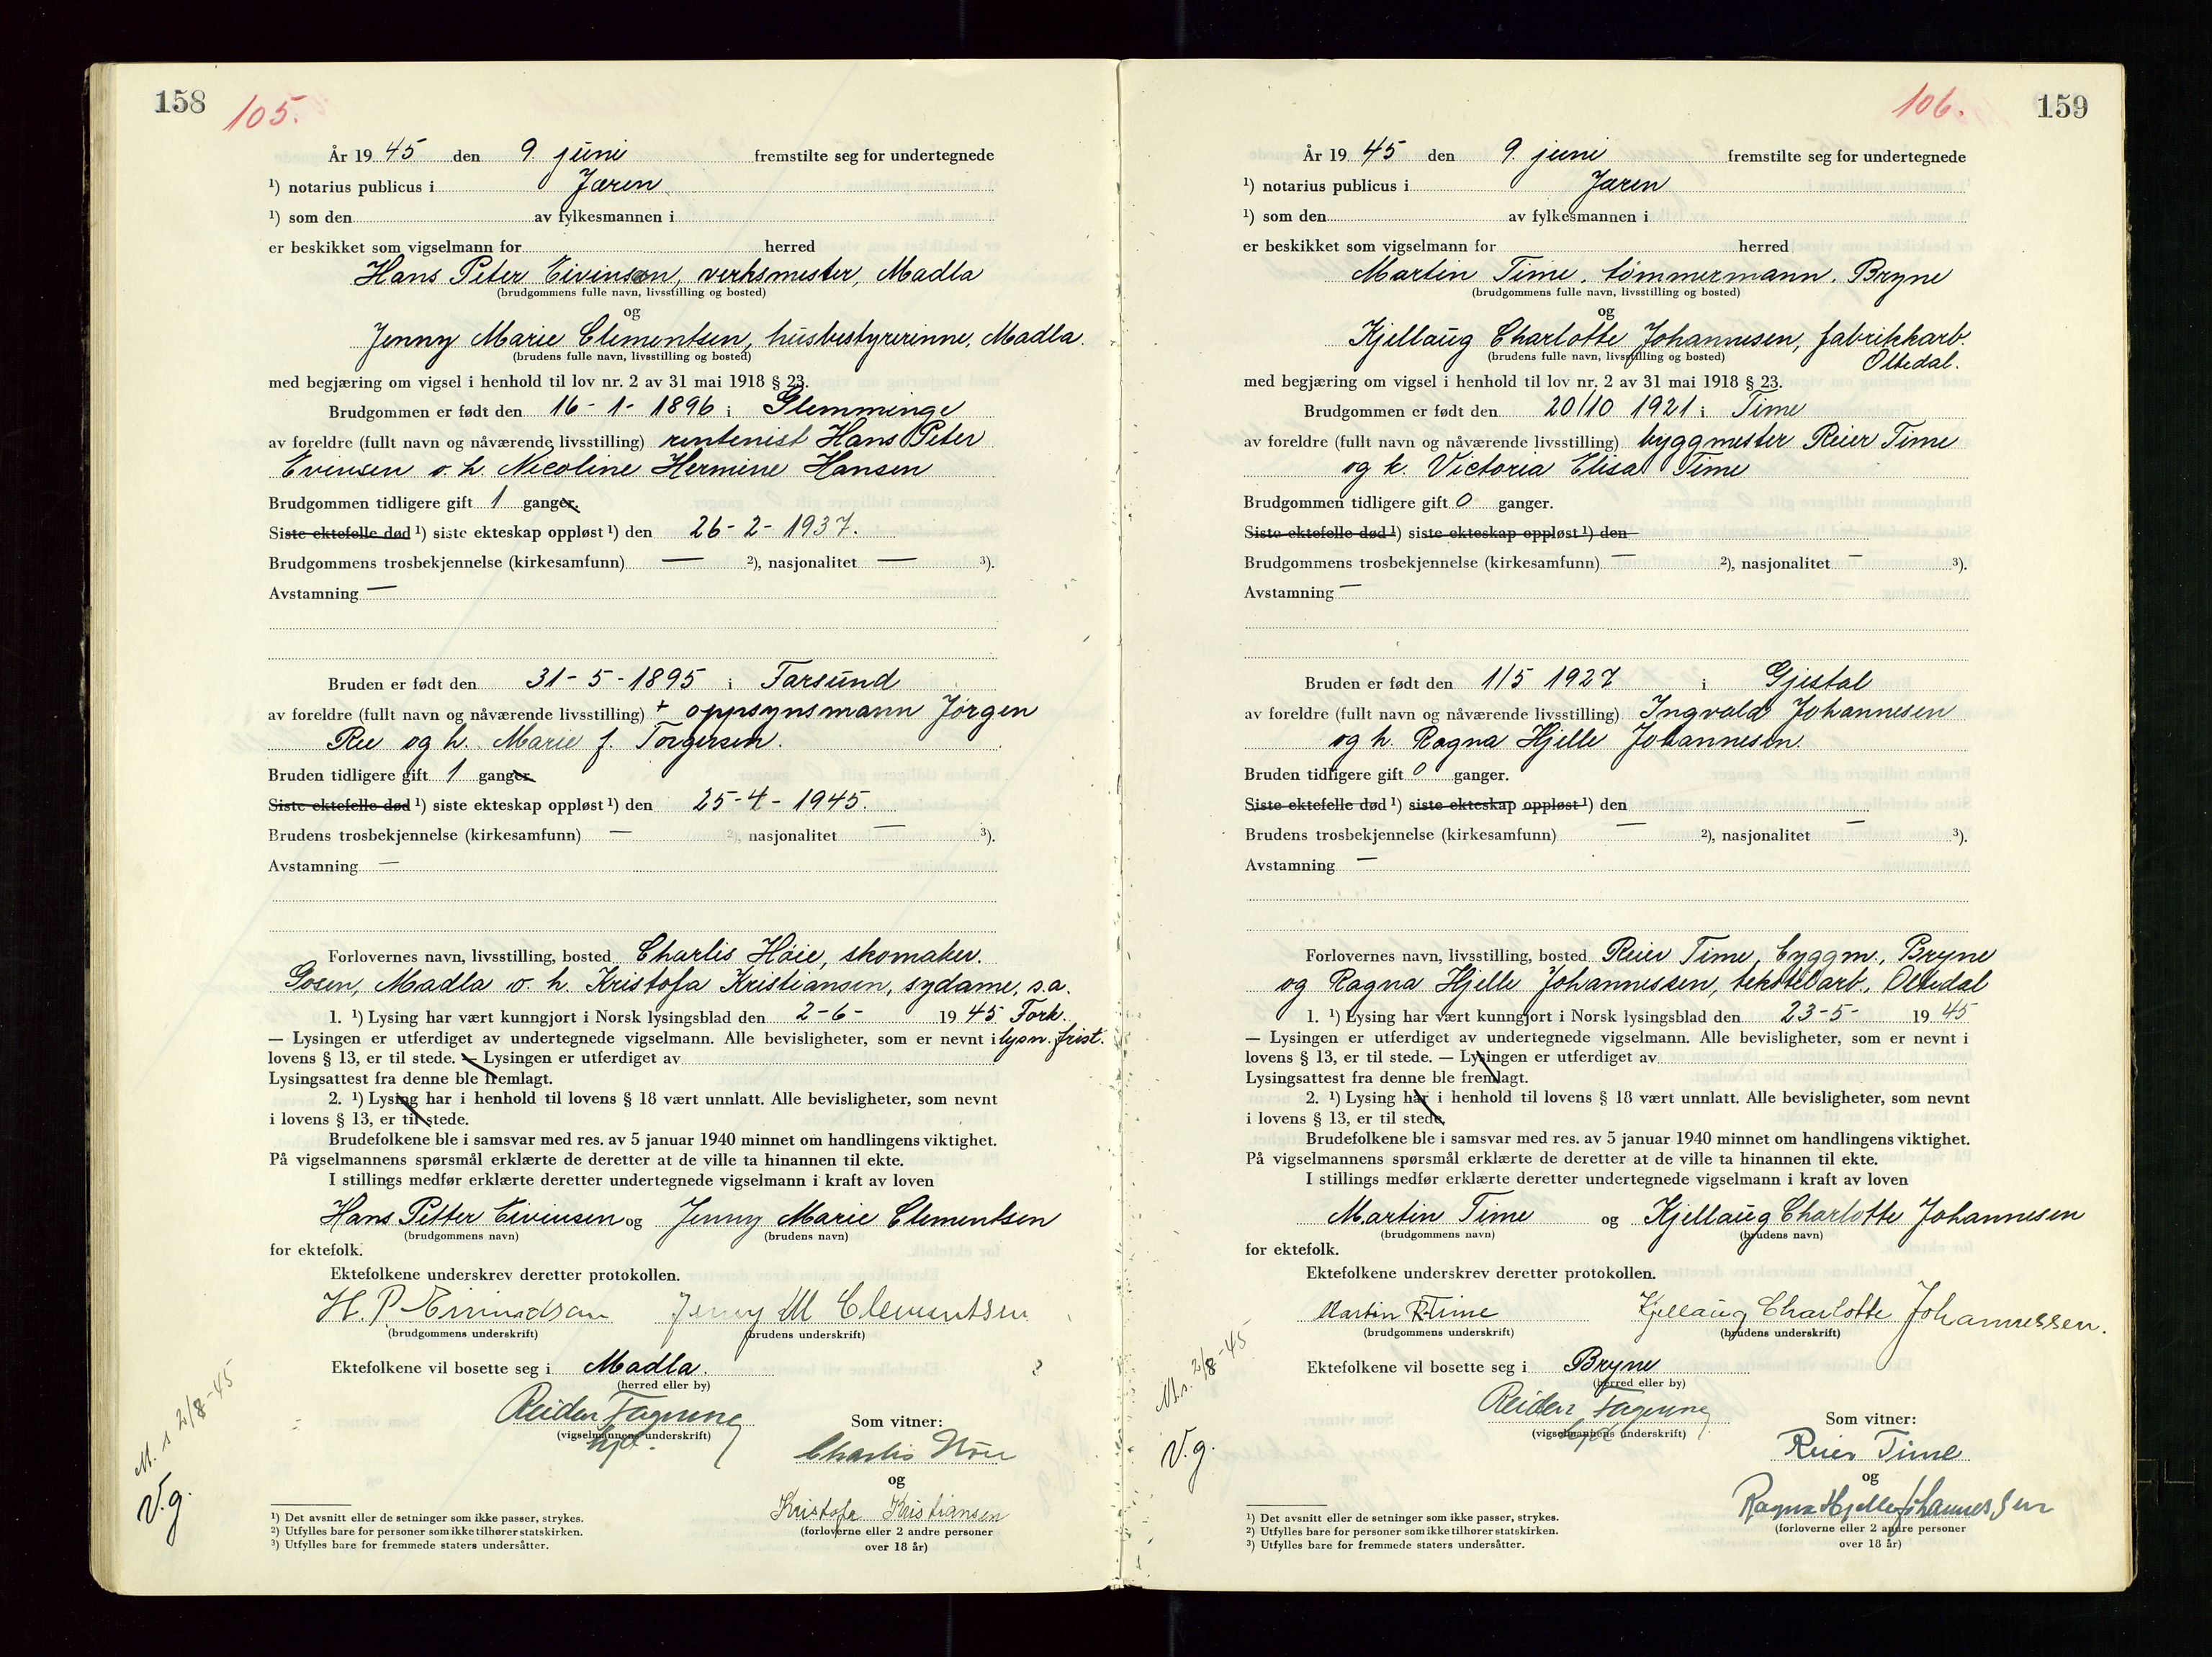 158
105.
År 1945 den 9. juni fremstilte seg for undertegnede
¹) notarius publicus i Jæren
¹) som den av fylkesmannen i
er beskikket som vigselmann for herred
Hans Peter Eivinsen, verksmester, Madla
(brudgommens fulle navn, livsstilling og bosted)
og
Jenny Marie Clementsen, husbestyrerinne, Madla.
(brudens fulle navn, livsstilling og bosted)
med begjæring om vigsel i henhold til lov nr. 2 av 31 mai 1918 § 23.
Brudgommen er født den 16-1-1896 i Glemminge
av foreldre (fullt navn og nåværende livsstilling) rentenist Hans Peter
Evinsen o. h. Nicoline Hermine Hansen
Brudgommen tidligere gift 1 ganger.
Siste ektefelle død ¹) siste ekteskap oppløst ¹) den 26-2-1937.
Brudgommens trosbekjennelse (kirkesamfunn) — ²), nasjonalitet — ³).
Avstamning —
Bruden er født den 31-5-1895 i Farsund
av foreldre (fullt navn og nåværende livsstilling) + oppsynsmann Jørgen
Ree og h. Marie f. Torgersen.
Bruden tidligere gift 1 ganger.
Siste ektefelle død ¹) siste ekteskap oppløst ¹) den 25-4-1945.
Brudens trosbekjennelse (kirkesamfunn) — ²), nasjonalitet — ³).
Avstamning —
Forlovernes navn, livsstilling, bosted Charlis Høie, skomaker.
Gosen, Madla o. h. Kristofa Kristiansen, sydame, s.a.
1. ¹) Lysing har vært kunngjort i Norsk lysingsblad den 2-6- 1945 Fork.
— Lysingen er utferdiget av undertegnede vigselmann. Alle bevisligheter, som er nevnt i lysn. frist.
lovens § 13, er til stede. — Lysingen er utferdiget av
Lysingsattest fra denne ble fremlagt.
2. ¹) Lysing har i henhold til lovens § 18 vært unnlatt. Alle bevisligheter, som nevnt
i lovens § 13, er til stede.
Brudefolkene ble i samsvar med res. av 5 januar 1940 minnet om handlingens viktighet.
På vigselmannens spørsmål erklærte de deretter at de ville ta hinannen til ekte.
I stillings medfør erklærte deretter undertegnede vigselmann i kraft av loven
Hans Petter Eivinsen og Jenny Marie Clementsen
(brudgommens navn) (brudens navn)
for ektefolk.
Ektefolkene underskrev deretter protokollen.
H. P. Eivindson Jenny M Clementsen
(brudgommens underskrift) (brudens underskrift)
Ektefolkene vil bosette seg i Madla.
(herred eller by)
Reidar
(vigselmannens underskrift)
Som vitner:
Charlis Høie
og
Kristofa Kristiansen
(forloverne eller 2 andre personer
over 18 år)
M. s 2/8-45
V.g.
¹) Det avsnitt eller de setninger som ikke passer, strykes.
²) Utfylles bare for personer som ikke tilhører statskirken.
³) Utfylles bare for fremmede staters undersåtter.
106.
159
År 1945 den 9. juni fremstilte seg for undertegnede
¹) notarius publicus i Jæren
¹) som den av fylkesmannen i
er beskikket som vigselmann for herred
Martin Time, tømmermann, Bryne
(brudgommens fulle navn, livsstilling og bosted)
og
Kjellaug Charlotte Johannesen, fabrikkarb.
(brudens fulle navn, livsstilling og bosted)
Oltedal.
med begjæring om vigsel i henhold til lov nr. 2 av 31 mai 1918 § 23.
Brudgommen er født den 20/10 1921 i Time
av foreldre (fullt navn og nåværende livsstilling) byggmester Reier Time
og h. Victoria Elisa Time
Brudgommen tidligere gift 0 ganger.
Siste ektefelle død ¹) siste ekteskap oppløst ¹) den
Brudgommens trosbekjennelse (kirkesamfunn) — ²), nasjonalitet — ³).
Avstamning —
Bruden er født den 1/5 1927 i Gjestal
av foreldre (fullt navn og nåværende livsstilling) Ingvald Johannesen
og h. Ragna Hjelle Johannesen.
Bruden tidligere gift 0 ganger.
Siste ektefelle død ¹) siste ekteskap oppløst ¹) den
Brudens trosbekjennelse (kirkesamfunn) — ²), nasjonalitet — ³).
Avstamning —
Forlovernes navn, livsstilling, bosted Reier Time, byggm., Bryne
og Ragna Hjelle Johannessen, tekstilarb., Oltedal
1. ¹) Lysing har vært kunngjort i Norsk lysingsblad den 23-5- 1945
— Lysingen er utferdiget av undertegnede vigselmann. Alle bevisligheter, som er nevnt i
lovens § 13, er til stede. — Lysingen er utferdiget av
Lysingsattest fra denne ble fremlagt.
2. ¹) Lysing har i henhold til lovens § 18 vært unnlatt. Alle bevisligheter, som nevnt
i lovens § 13, er til stede.
Brudefolkene ble i samsvar med res. av 5 januar 1940 minnet om handlingens viktighet.
På vigselmannens spørsmål erklærte de deretter at de ville ta hinannen til ekte.
I stillings medfør erklærte deretter undertegnede vigselmann i kraft av loven
Martin Time og Kjellaug Charlotte Johannesen
(brudgommens navn) (brudens navn)
for ektefolk.
Ektefolkene underskrev deretter protokollen.
Martin R. Time Kjellaug Charlotte Johannessen.
(brudgommens underskrift) (brudens underskrift)
Ektefolkene vil bosette seg i Bryne
(herred eller by)
Reidar
(vigselmannens underskrift)
Som vitner:
Reier Time
og
Ragna Hjelle Johannessen
(forloverne eller 2 andre personer
over 18 år)
M. s. 2/8-45
V.g.
¹) Det avsnitt eller de setninger som ikke passer, strykes.
²) Utfylles bare for personer som ikke tilhører statskirken.
³) Utfylles bare for fremmede staters undersåtter.